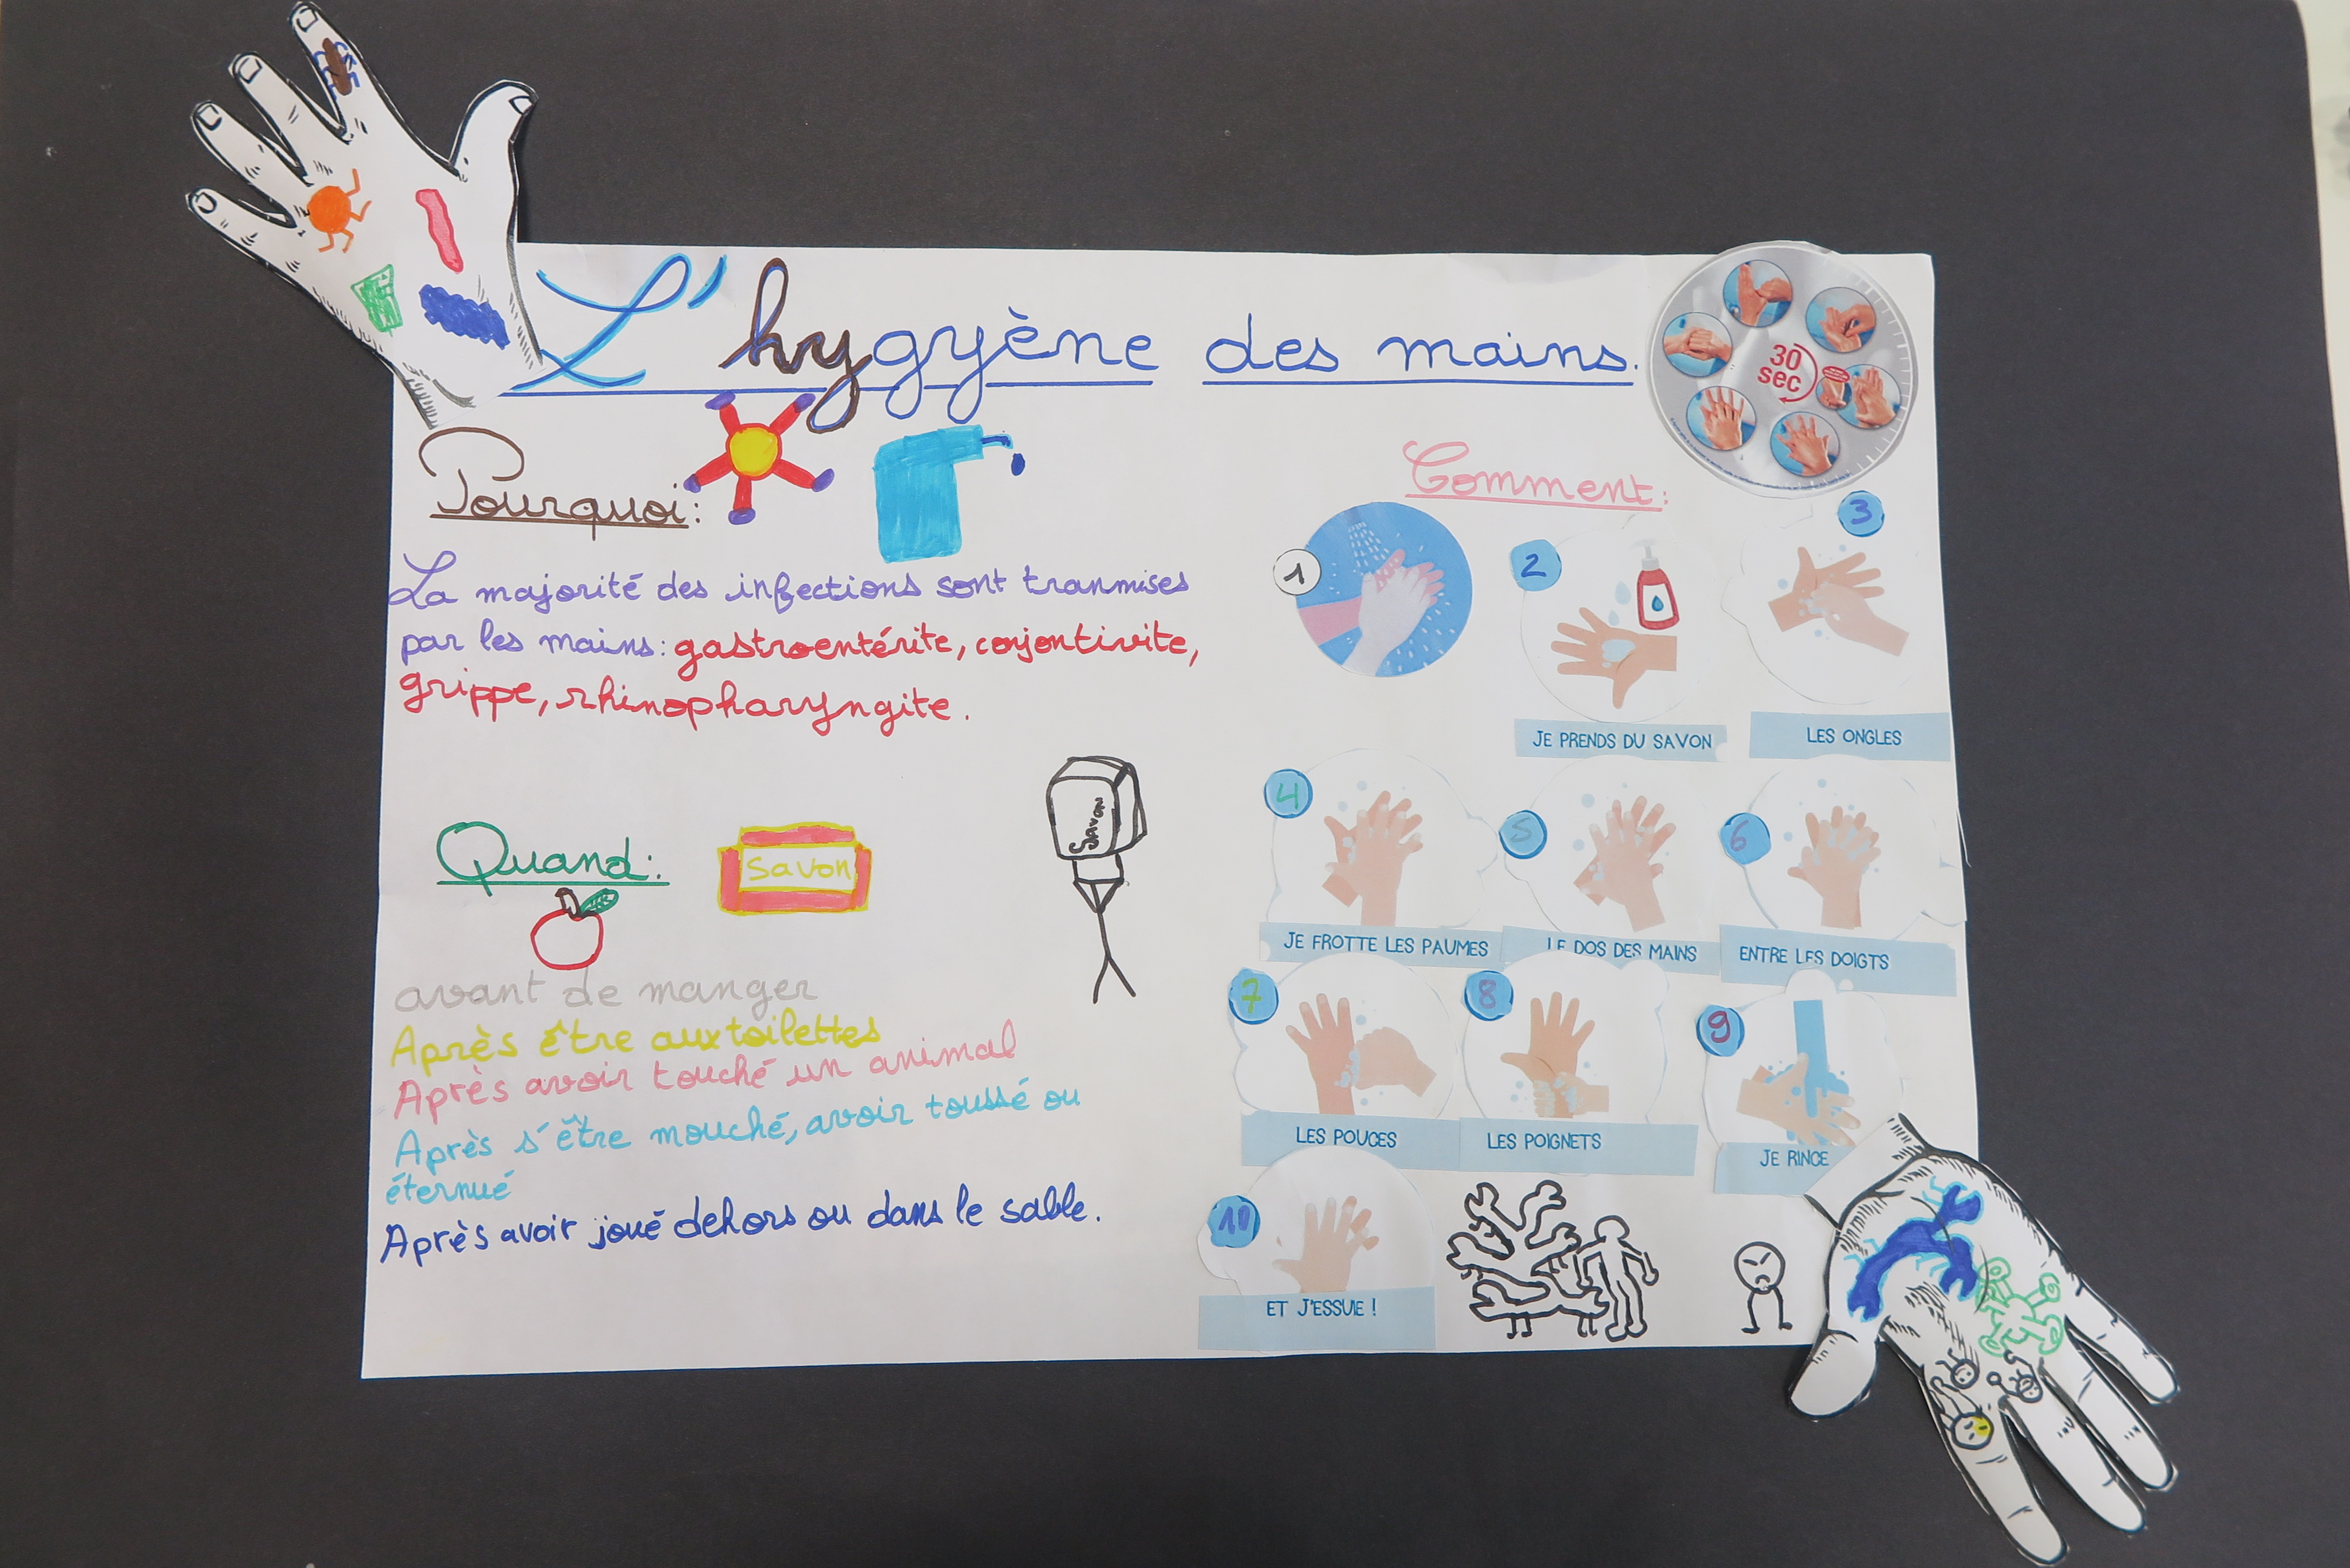 L'hygyène des mains.
30
sec
Pourquoi:
La majorité des infections sont tranmises
par les mains: gastroentérite, conjontivite,
grippe, rhinopharyngite.
Quand:
Savon
Savon
avant de manger
Après être aux toilettes
Après avoir touché un animal
Après s'être mouché, avoir toussé ou
éternué
Après avoir joué dehors ou dans le sable.
Comment:
1
2
JE PRENDS DU SAVON
3
LES ONGLES
4
JE FROTTE LES PAUMES
5
LE DOS DES MAINS
6
ENTRE LES DOIGTS
7
LES POUCES
8
LES POIGNETS
9
JE RINCE
10
ET J'ESSUIE !